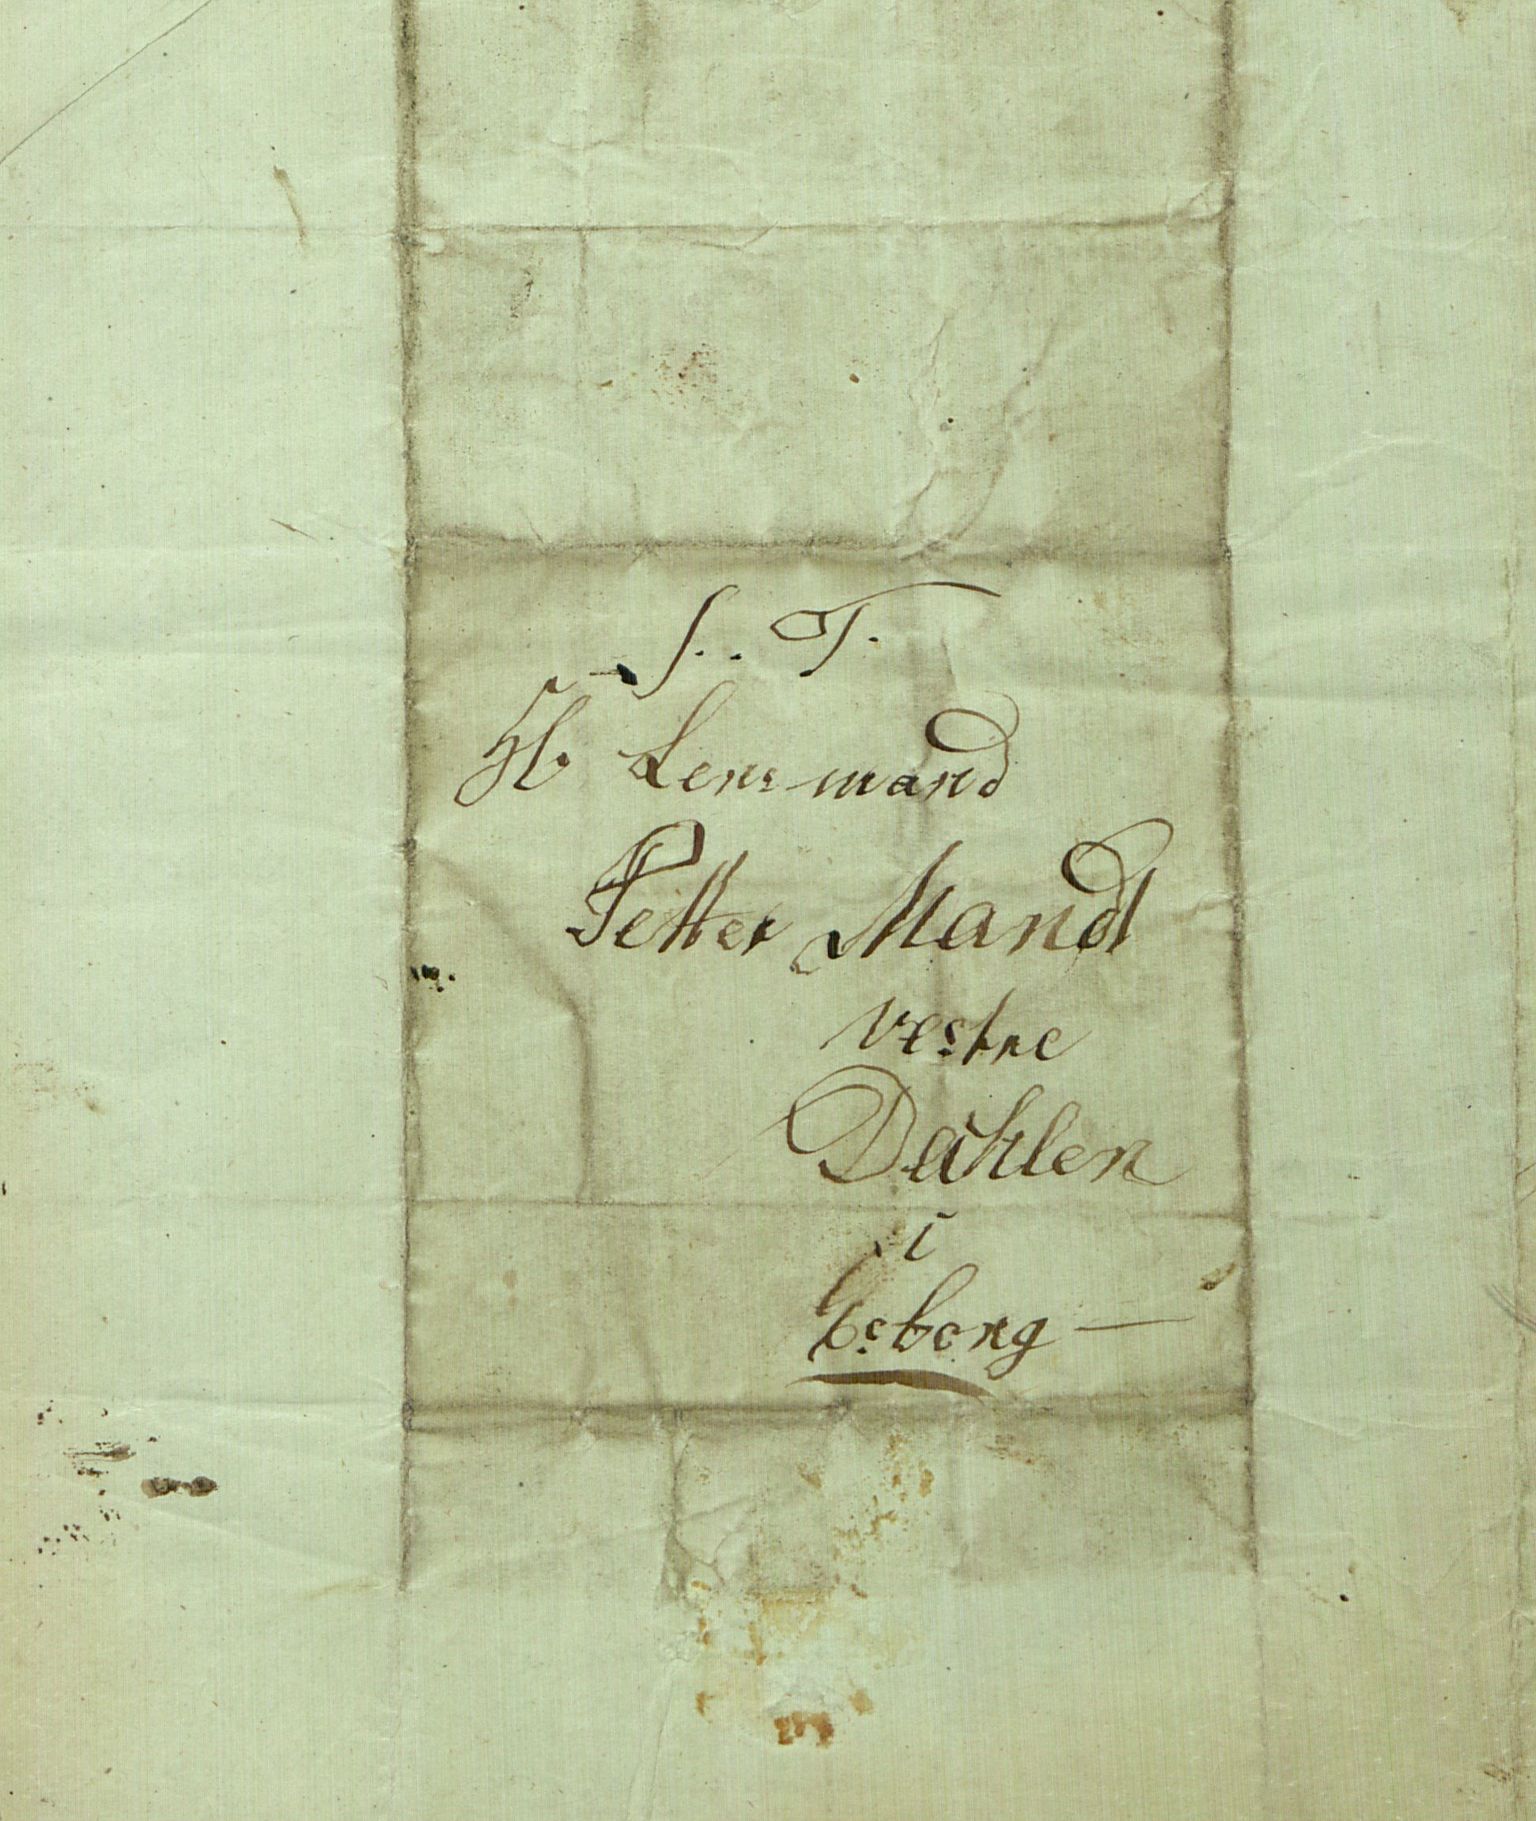 S. T.
Hr. Lensmand
Petter Mand
vestre
Dahlen
i